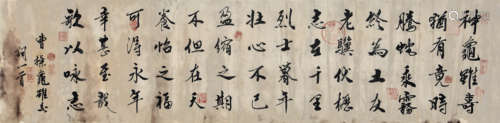 神龜雖壽
猶有竟時
騰蛇乘霧
終為土灰
老驥伏櫪
志在千里
烈士暮年
壯心不已
盈縮之期
不但在天
養怡之福
可得永年
幸甚至哉
歌以咏志
曹操龜雖壽